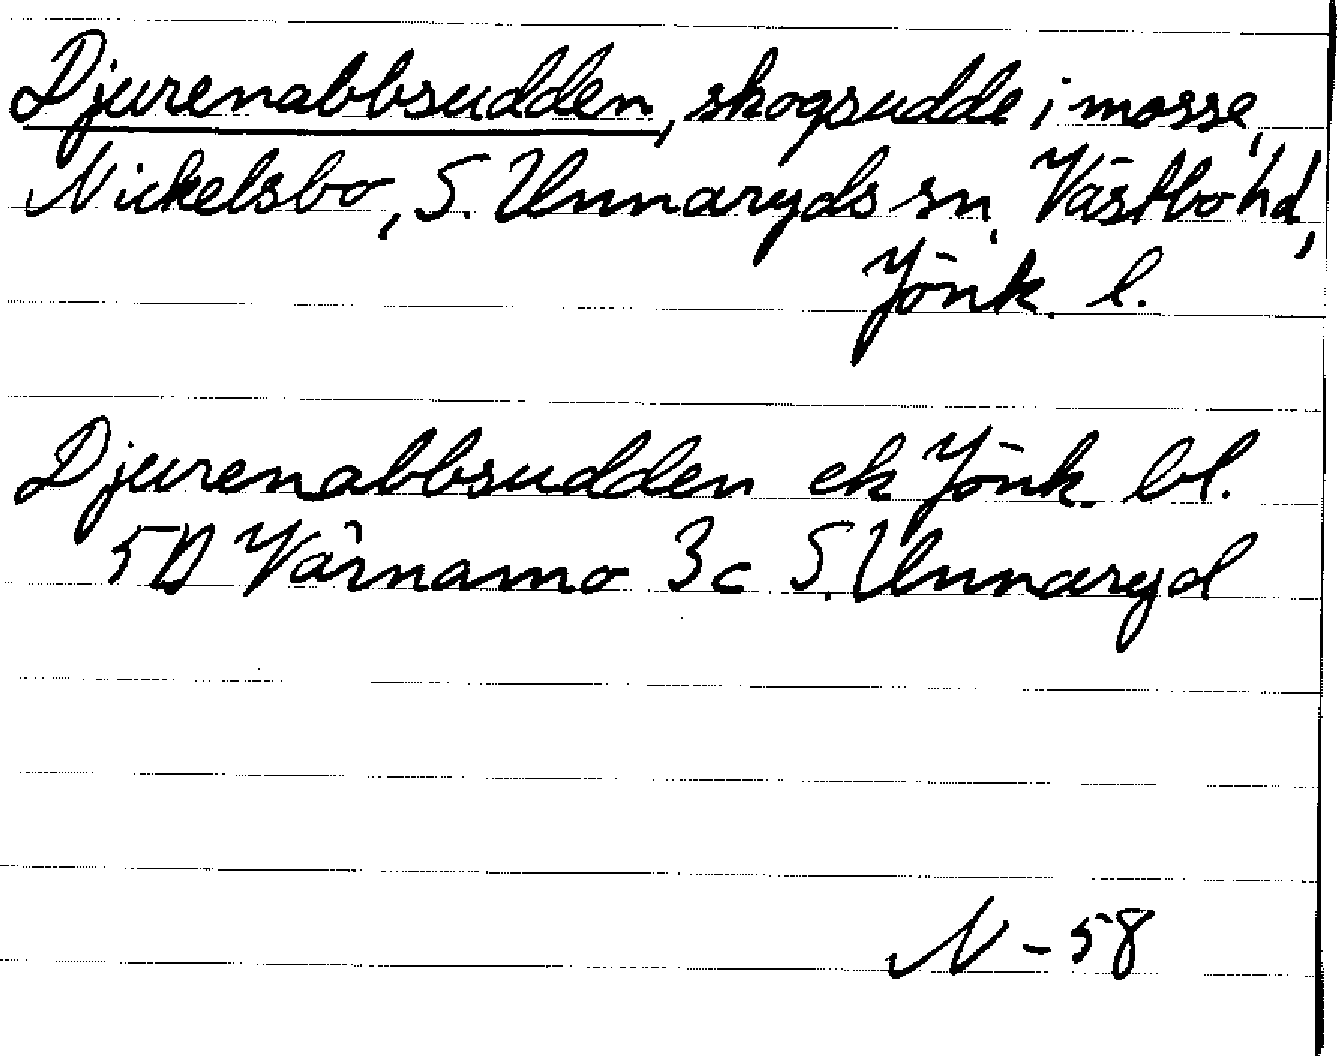 Djurenabbsudden, skogsudde i mosse,
Nickelsbo, S. Unnaryds sn, Västbo hd,
Jönk. l.
Djurenabbsudden ek Jönk. bl.
5D Värnamo 3c S. Unnaryd
N - 58